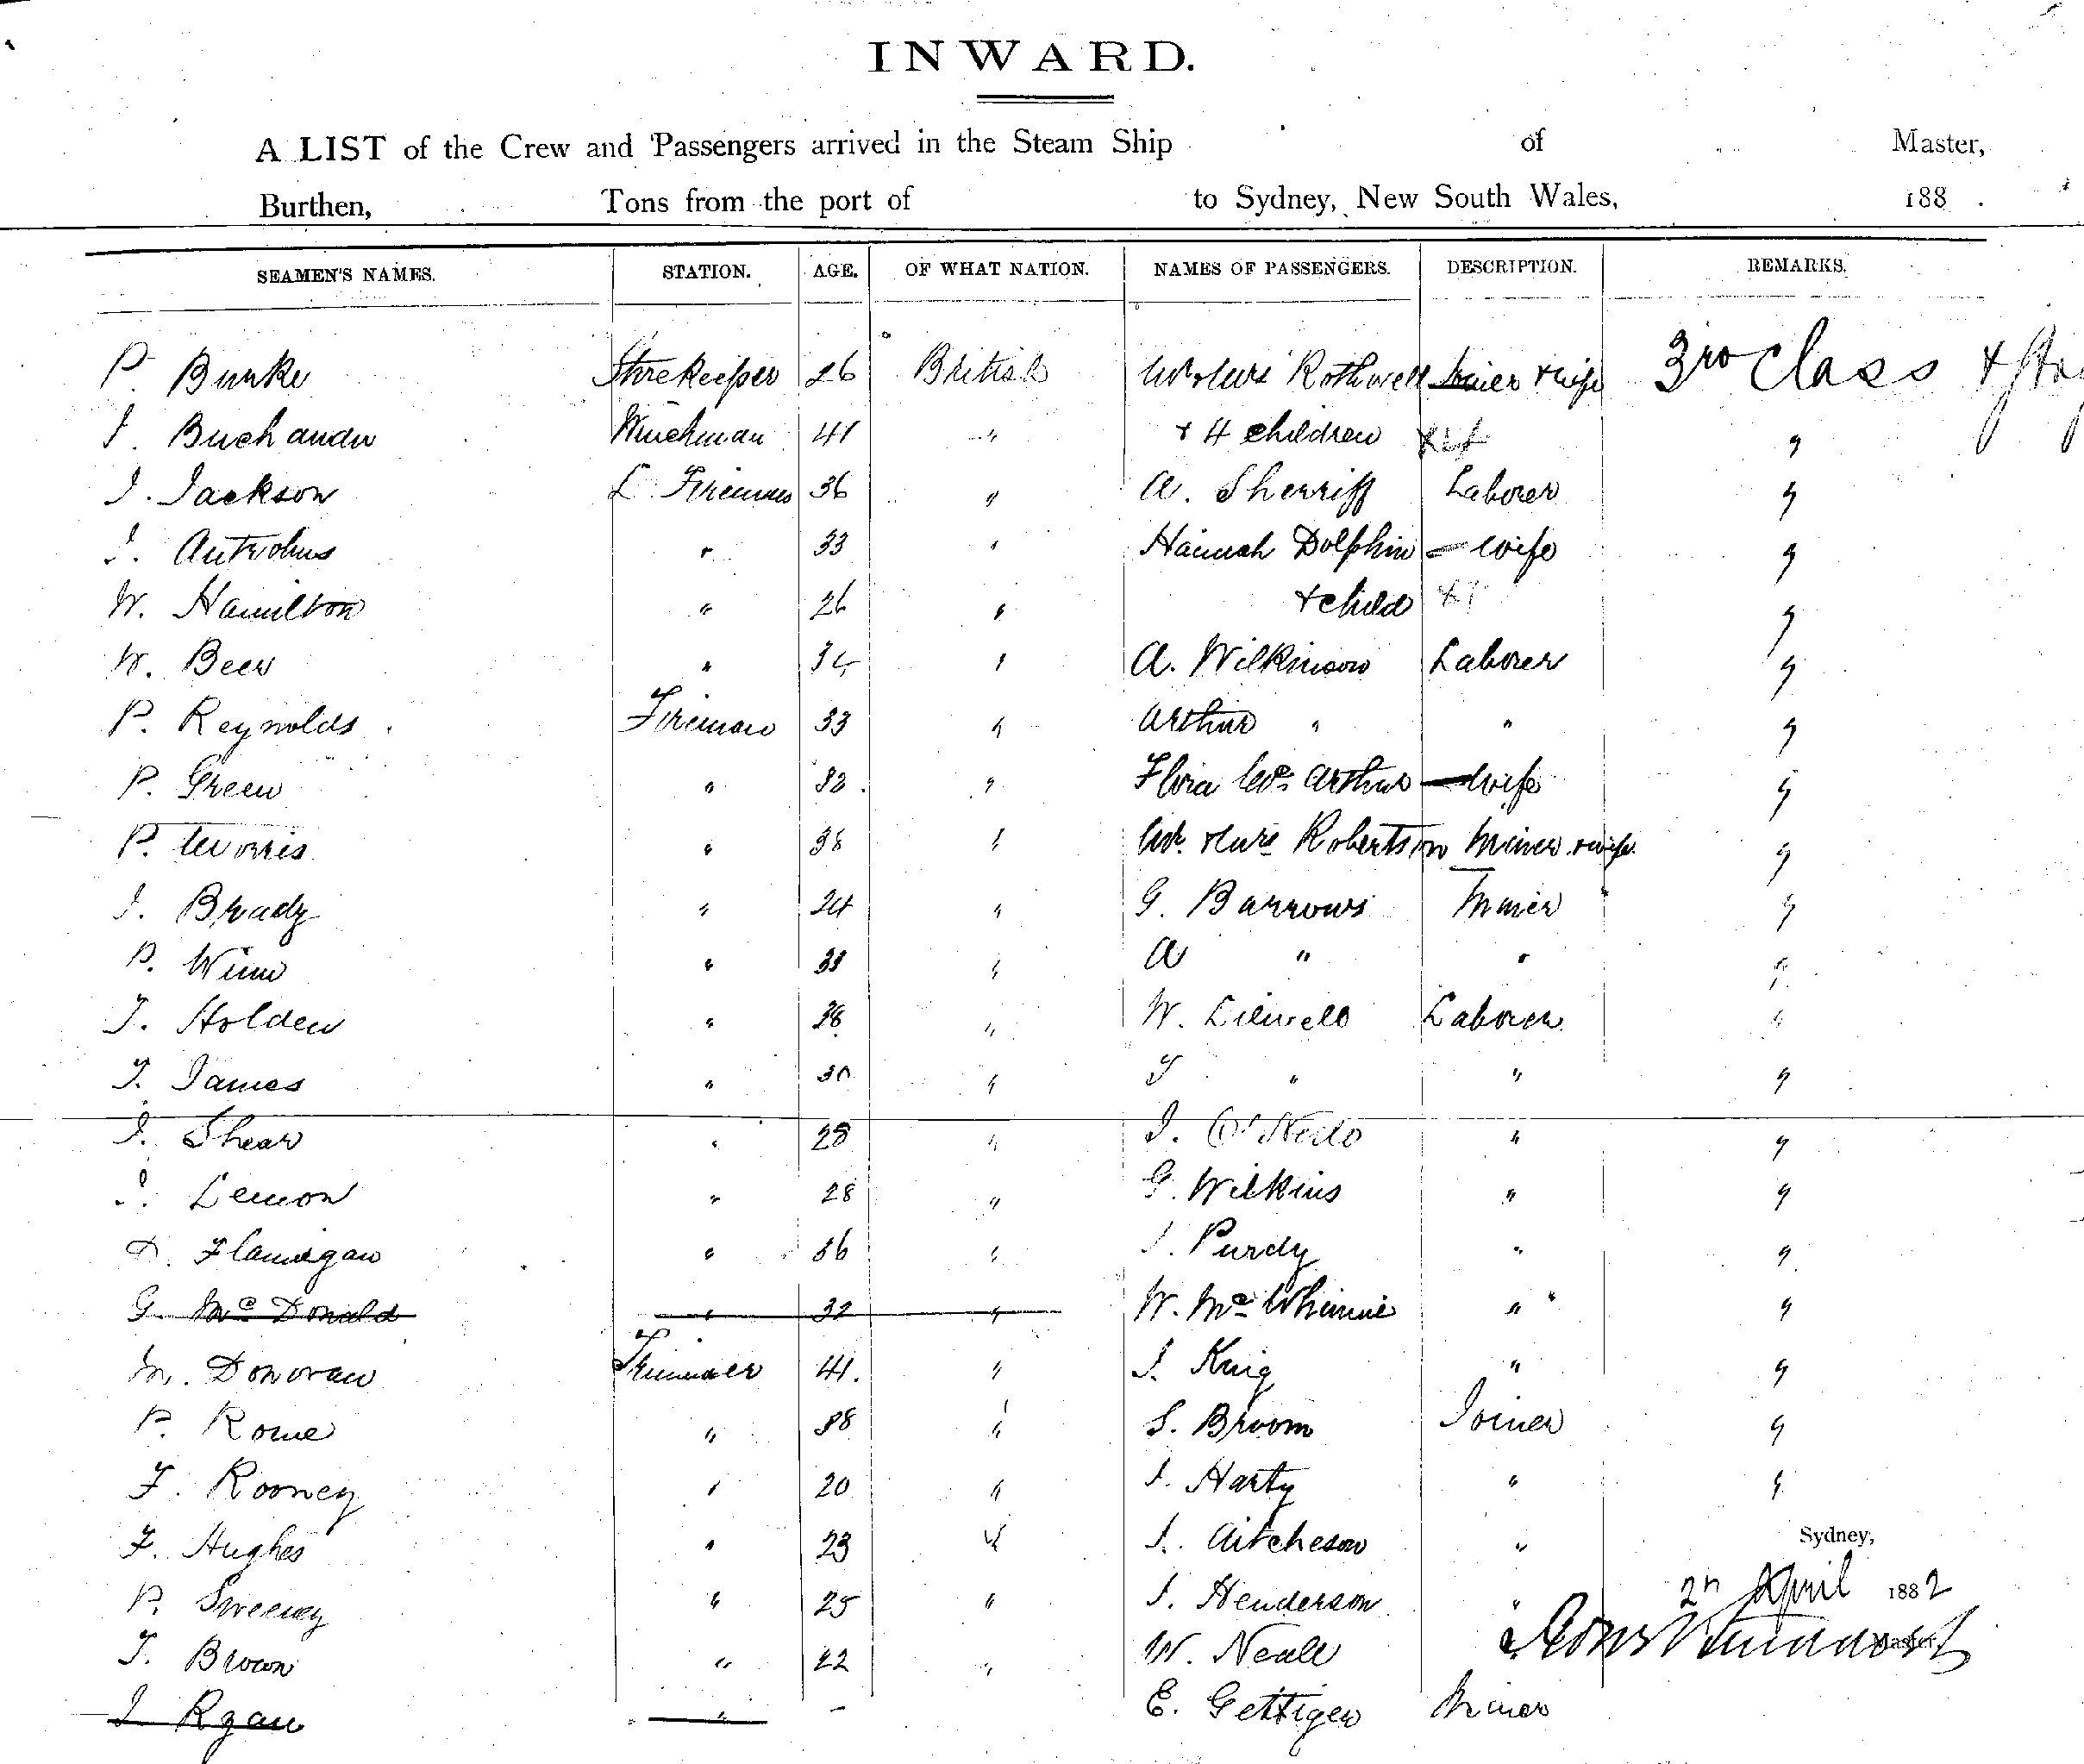 INWARD.
A LIST of the Crew and Passengers arrived in the Steam Ship of Master,
Burthen, Tons from the port of to Sydney, New South Wales, 188 .
SEAMEN'S NAMES. STATION. AGE. OF WHAT NATION. NAMES OF PASSENGERS. DESCRIPTION. REMARKS.
P. Burke Storekeeper 26 British Mr & Mrs Rothwell & wife 3rd Class
J. Buchanan Winchman 41 " + 4 children "
J. Jackson L. Fireman 36 " A. Sherriff Laborer "
J. Antrobus " 33 " Hannah Dolphin - Wife "
W. Hamilton " 26 " + child "
W. Beer " " A. Wilkinson Laborer "
P. Reynolds Fireman 33 " Arthur " " "
P. Green " 32 " Flora Mc Arthur - Wife "
P. Morris " 38 " Mr & Mrs Robertson Miner & wife "
J. Brady " 24 " G. Barrows Miner "
P. Winn " 33 " A " " "
T. Holden " 38 " W. Laborer "
T. James " 30 " T " " "
J. Shear " 28 " J. O'Neill " "
J. Lemon " 28 " G. Wilkins " "
D. Flanigan " 36 " J. Purdy " "
G. McDonald " 32 " W. McWhinnie " "
M. Donovan Trimmer 41. " J. King " "
P. Rowe " 38 " S. Broom Joiner "
F. Rooney " 20 " J. Harty " "
F. Hughes " 23 " J. Aitcheson "
Sydney,
P. Sweeney " 25 " J. Henderson "
2n April 1882
T. Brown " 22 " W. Neale
Master.
J Ryan " - E. Gettigen Miner